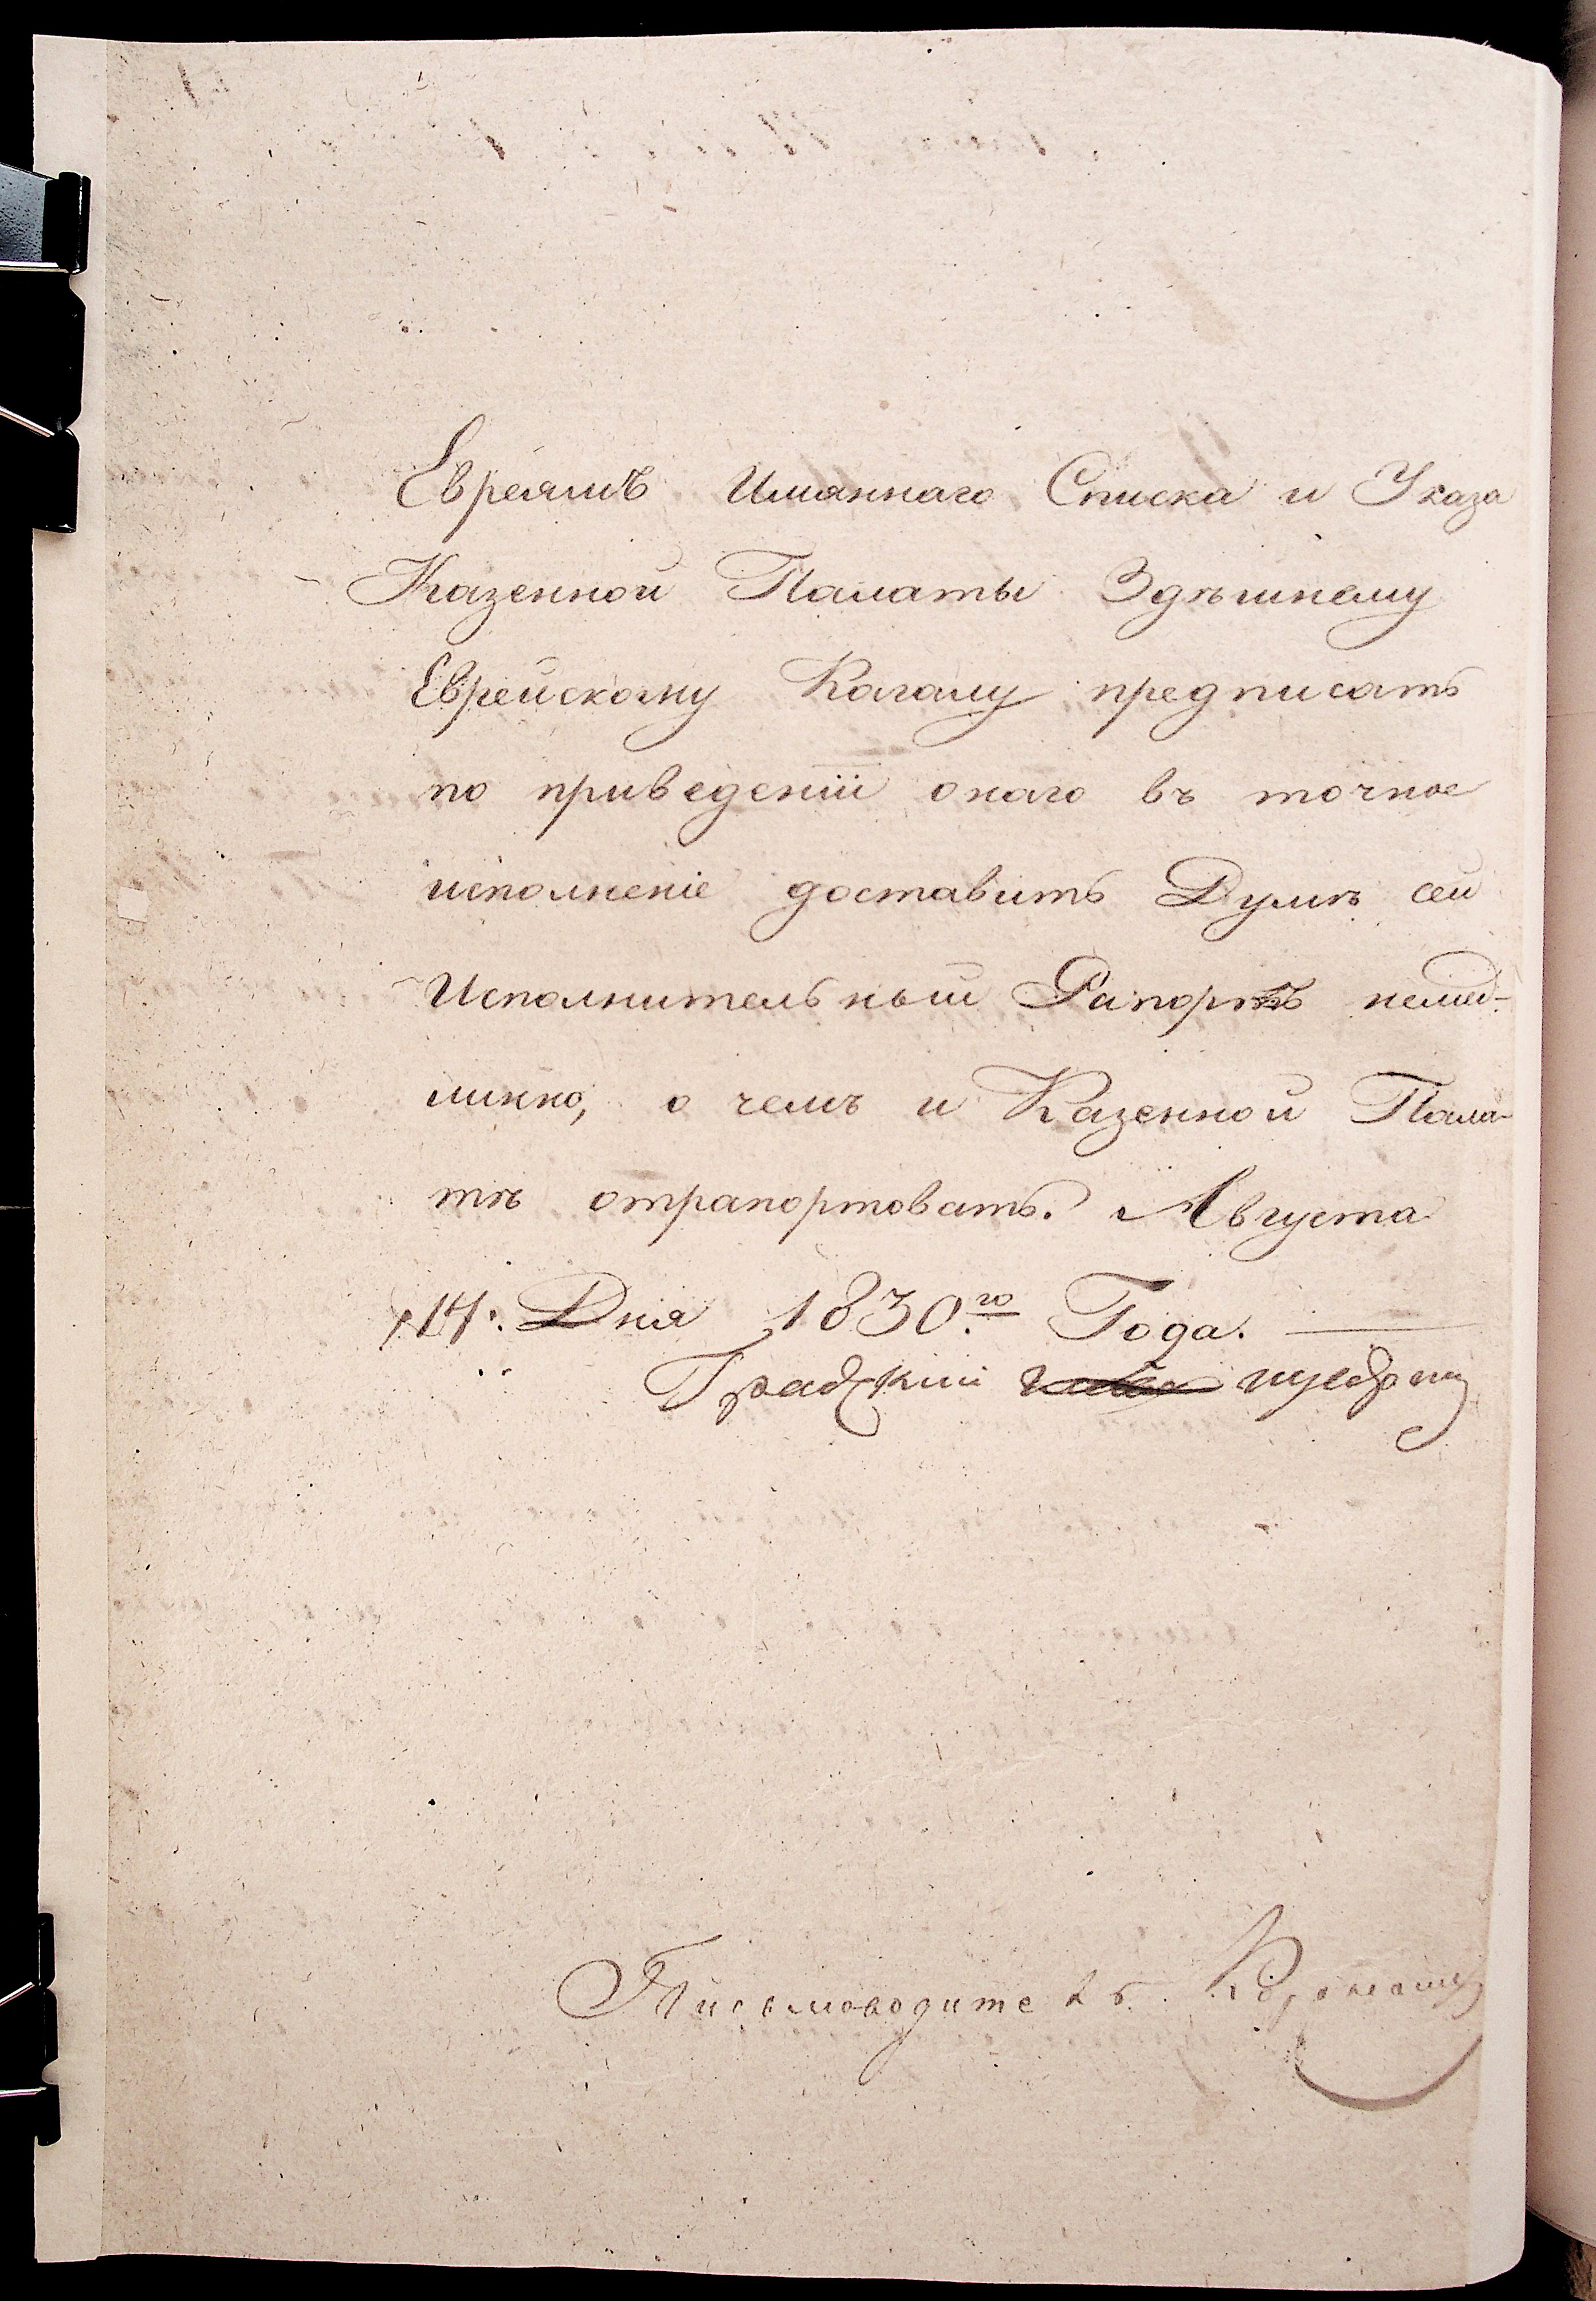 Евреямъ Имяннаго Списка и Указа
Казенной Палаты Здѣшнему
Еврейскому Кагалу предписать
по приведенiи онаго въ точное
исполненiе доставить Думѣ сей
Исполнительный Рапортъ немед-
линно, о чемъ и Казенной Пала-
тѣ отрапортовать. Августа
14: Дня 1830.го Года.
Градскiй
Письмоводитель